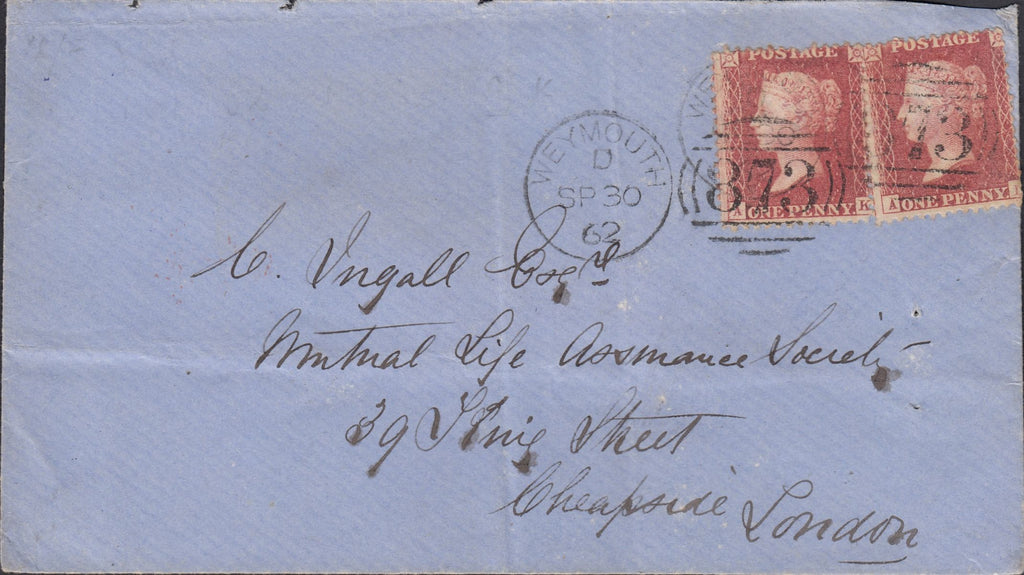 POSTAGE POSTAGE
WE
873 73
A ONE PENNY K A ONE PENNY
WEYMOUTH
D
SP 30
62
C. Ingall Esqre
Mutual Life Assurance Society
39 King Street
Cheapside London